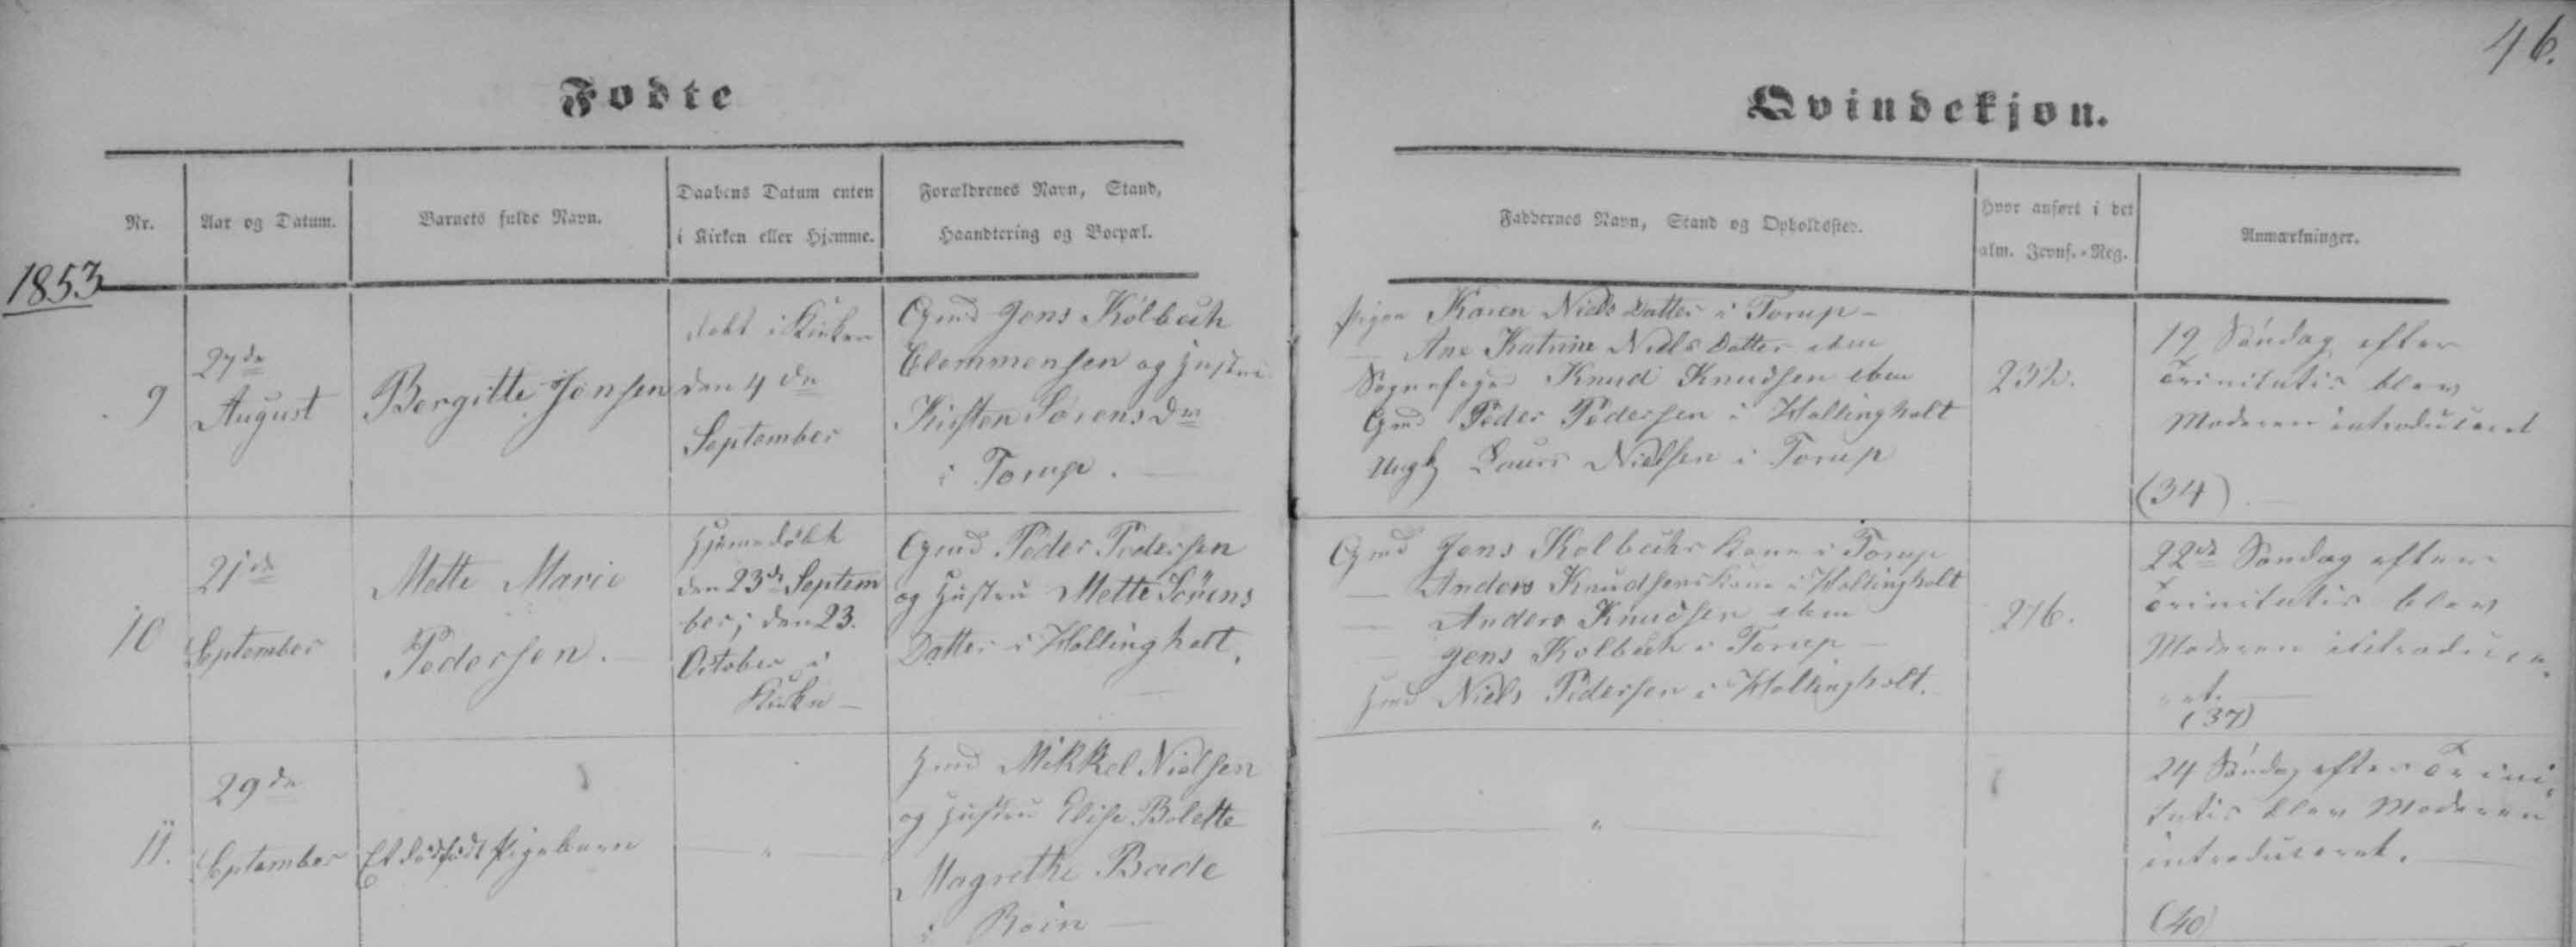 46.
Fødte
Qvindekjøn.
Nr.
Aar og Datum.
Barnets fulde Navn.
Daabens Datum enten
i Kirken eller Hjemme.
Forældrenes Navn, Stand,
Haandtering og Boepæl.
Faddernes Navn, Stand og Opholdssted.
Hvor anført i det
alm. Jevnf.-Reg.
Anmærkninger.
1853
9
27de
August
Bergitte Jensen
døbt i Kirken
den 4de
September
Gmd Jens Kölbeck
Clemmensen og Hustru
Kirsten Sørensdr
i Torup.
Pigen Karen Niels Datter i Torup
Ane Katrine Niels Datter ibm
Sognefoged Knud Knudsen ibm
Gmd Peder Pedersen i Hollingholt
Ungk Laurs Nielsen i Torup
232.
19 Söndag efter
Trinitatis blev
Moderen introduceret
(34)
10
21de
September
Mette Marie
Pedersen.
Hjemmedöbt
den 23de Septem
ber; den 23.
October i
Kirken
Gmd Peder Pedersen
og Hustru Mette Sörens
Datter i Hollingholt.
Gmd Jens Kolbecks Kone i Torup
— Anders Knudsens Kone i Hollingholt
— Anders Knudsen ibm
— Jens Kolbeck i Torup
Hmd Niels Pedersen i Hollingholt.
216.
22de Søndag efter
Trinitatis blev
Moderen introduce
ret.
(37)
11.
29de
September
Et dødfødt Pigebarn
"
Hmd Mikkel Nielsen
og Hustru Elise Bolette
Magrethe Bade
i
"
24 Söndag efter Trini
tatis blev Moderen
introduceret.
(40)